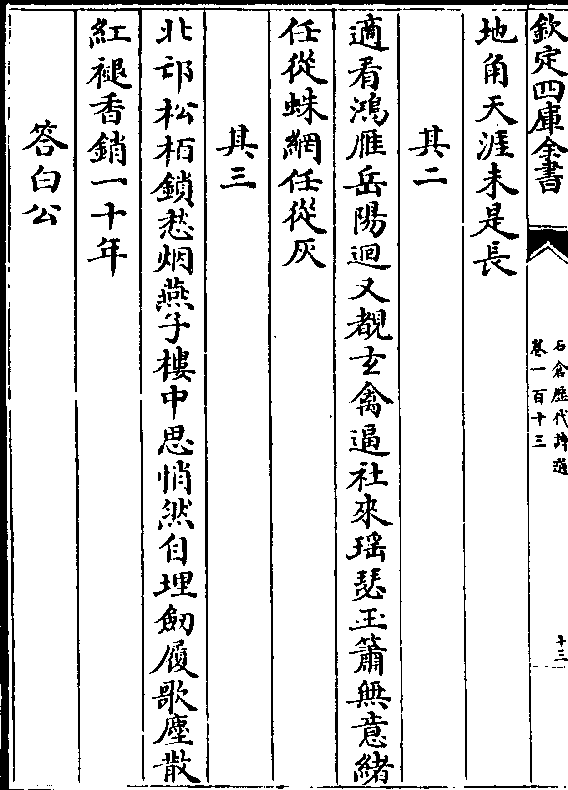 欽定四庫全書
石倉歷代詩選
卷一百十三
十三
地角天涯未是長
其二
適看鴻雁岳陽迴又覩玄禽逼社來瑶瑟玉簫無意緒
任從蛛網任從灰
其三
北邙松栢鎖愁烟燕子樓中思悄然自埋劒履歌塵散
紅褪香銷一十年
答白公